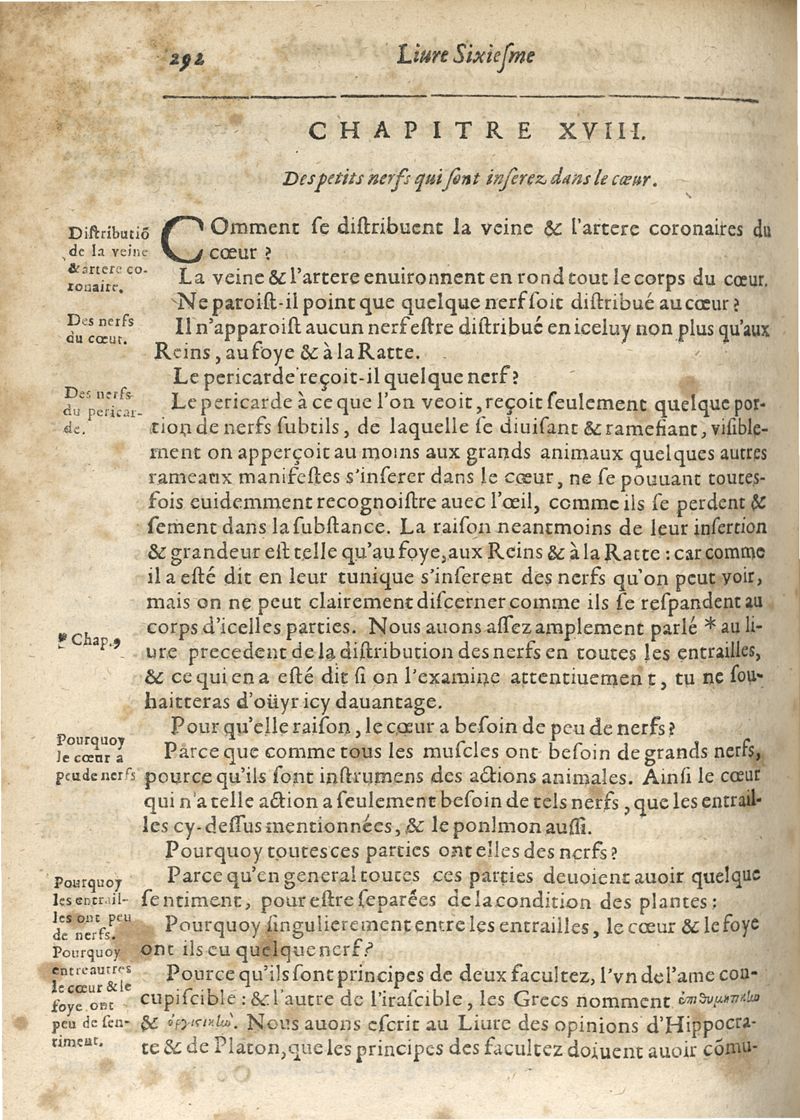 292
Liure Sixiesme
CHAPITRE XVIII.
Des petits nerfs qui sont inserez dans le cœur.
Distributiõ
de la veine
& artere co-
ronaire.
COmment se distribuent la veine & l'artere coronaires du
cœur ?
La veine & l'artere enuironnent en rond tout le corps du cœur.
Ne paroist-il point que quelque nerf soit distribué au cœur ?
Des nerfs
du cœur.
Il n'apparoist aucun nerf estre distribué en iceluy non plus qu'aux
Reins, au foye & à la Ratte.
Le pericarde reçoit-il quelque nerf ?
Des nerfs
du pericar-
de.
Le pericarde à ce que l'on veoit, reçoit seulement quelque por-
tion de nerfs subtils, de laquelle se diuisant & ramefiant, visible-
ment on apperçoit au moins aux grands animaux quelques autres
rameaux manifestes s'inserer dans le cœur, ne se pouuant toutes-
fois euidemment recognoistre auec l'œil, comme ils se perdent &
sement dans la substance. La raison neantmoins de leur insertion
& grandeur est telle qu'au foye, aux Reins & à la Ratte : car comme
il a esté dit en leur tunique s'inserent des nerfs qu'on peut voir,
mais on ne peut clairement discerner comme ils se respandent au
corps d'icelles parties. Nous auons assez amplement parlé * au li-
* Chap. 9
ure precedent de la distribution des nerfs en toutes les entrailles,
& ce qui en a esté dit si on l'examine attentiuement, tu ne sou-
haitteras d'oüyr icy dauantage.
Pour qu'elle raison, le cœur a besoin de peu de nerfs ?
Pourquoy
le cœur a
peu de nerfs
Parce que comme tous les muscles ont besoin de grands nerfs,
pource qu'ils sont instrumens des actions animales. Ainsi le cœur
qui n'a telle action a seulement besoin de tels nerfs, que les entrail-
les cy-dessus mentionnées, & le ponlmon aussi.
Pourquoy toutes ces parties ont elles des nerfs ?
Pourquoy
les entrail-
les ont peu
de nerfs.
Parce qu'en general toutes ces parties deuoient auoir quelque
sentiment, pour estre separées de la condition des plantes :
Pourquoy singulierement entre les entrailles, le cœur & le foye
ont ils eu quelque nerf ?
Pourquoy
entre autres
le cœur & le
foye ont
peu de sen-
timent.
Pource qu'ils sont principes de deux facultez, l'vn de l'ame con-
cupiscible : & l'autre de l'irascible, les Grecs nomment
& . Nous auons escrit au Liure des opinions d'Hippocra-
te & de Platon, que les principes des facultez doiuent auoir cõmu-